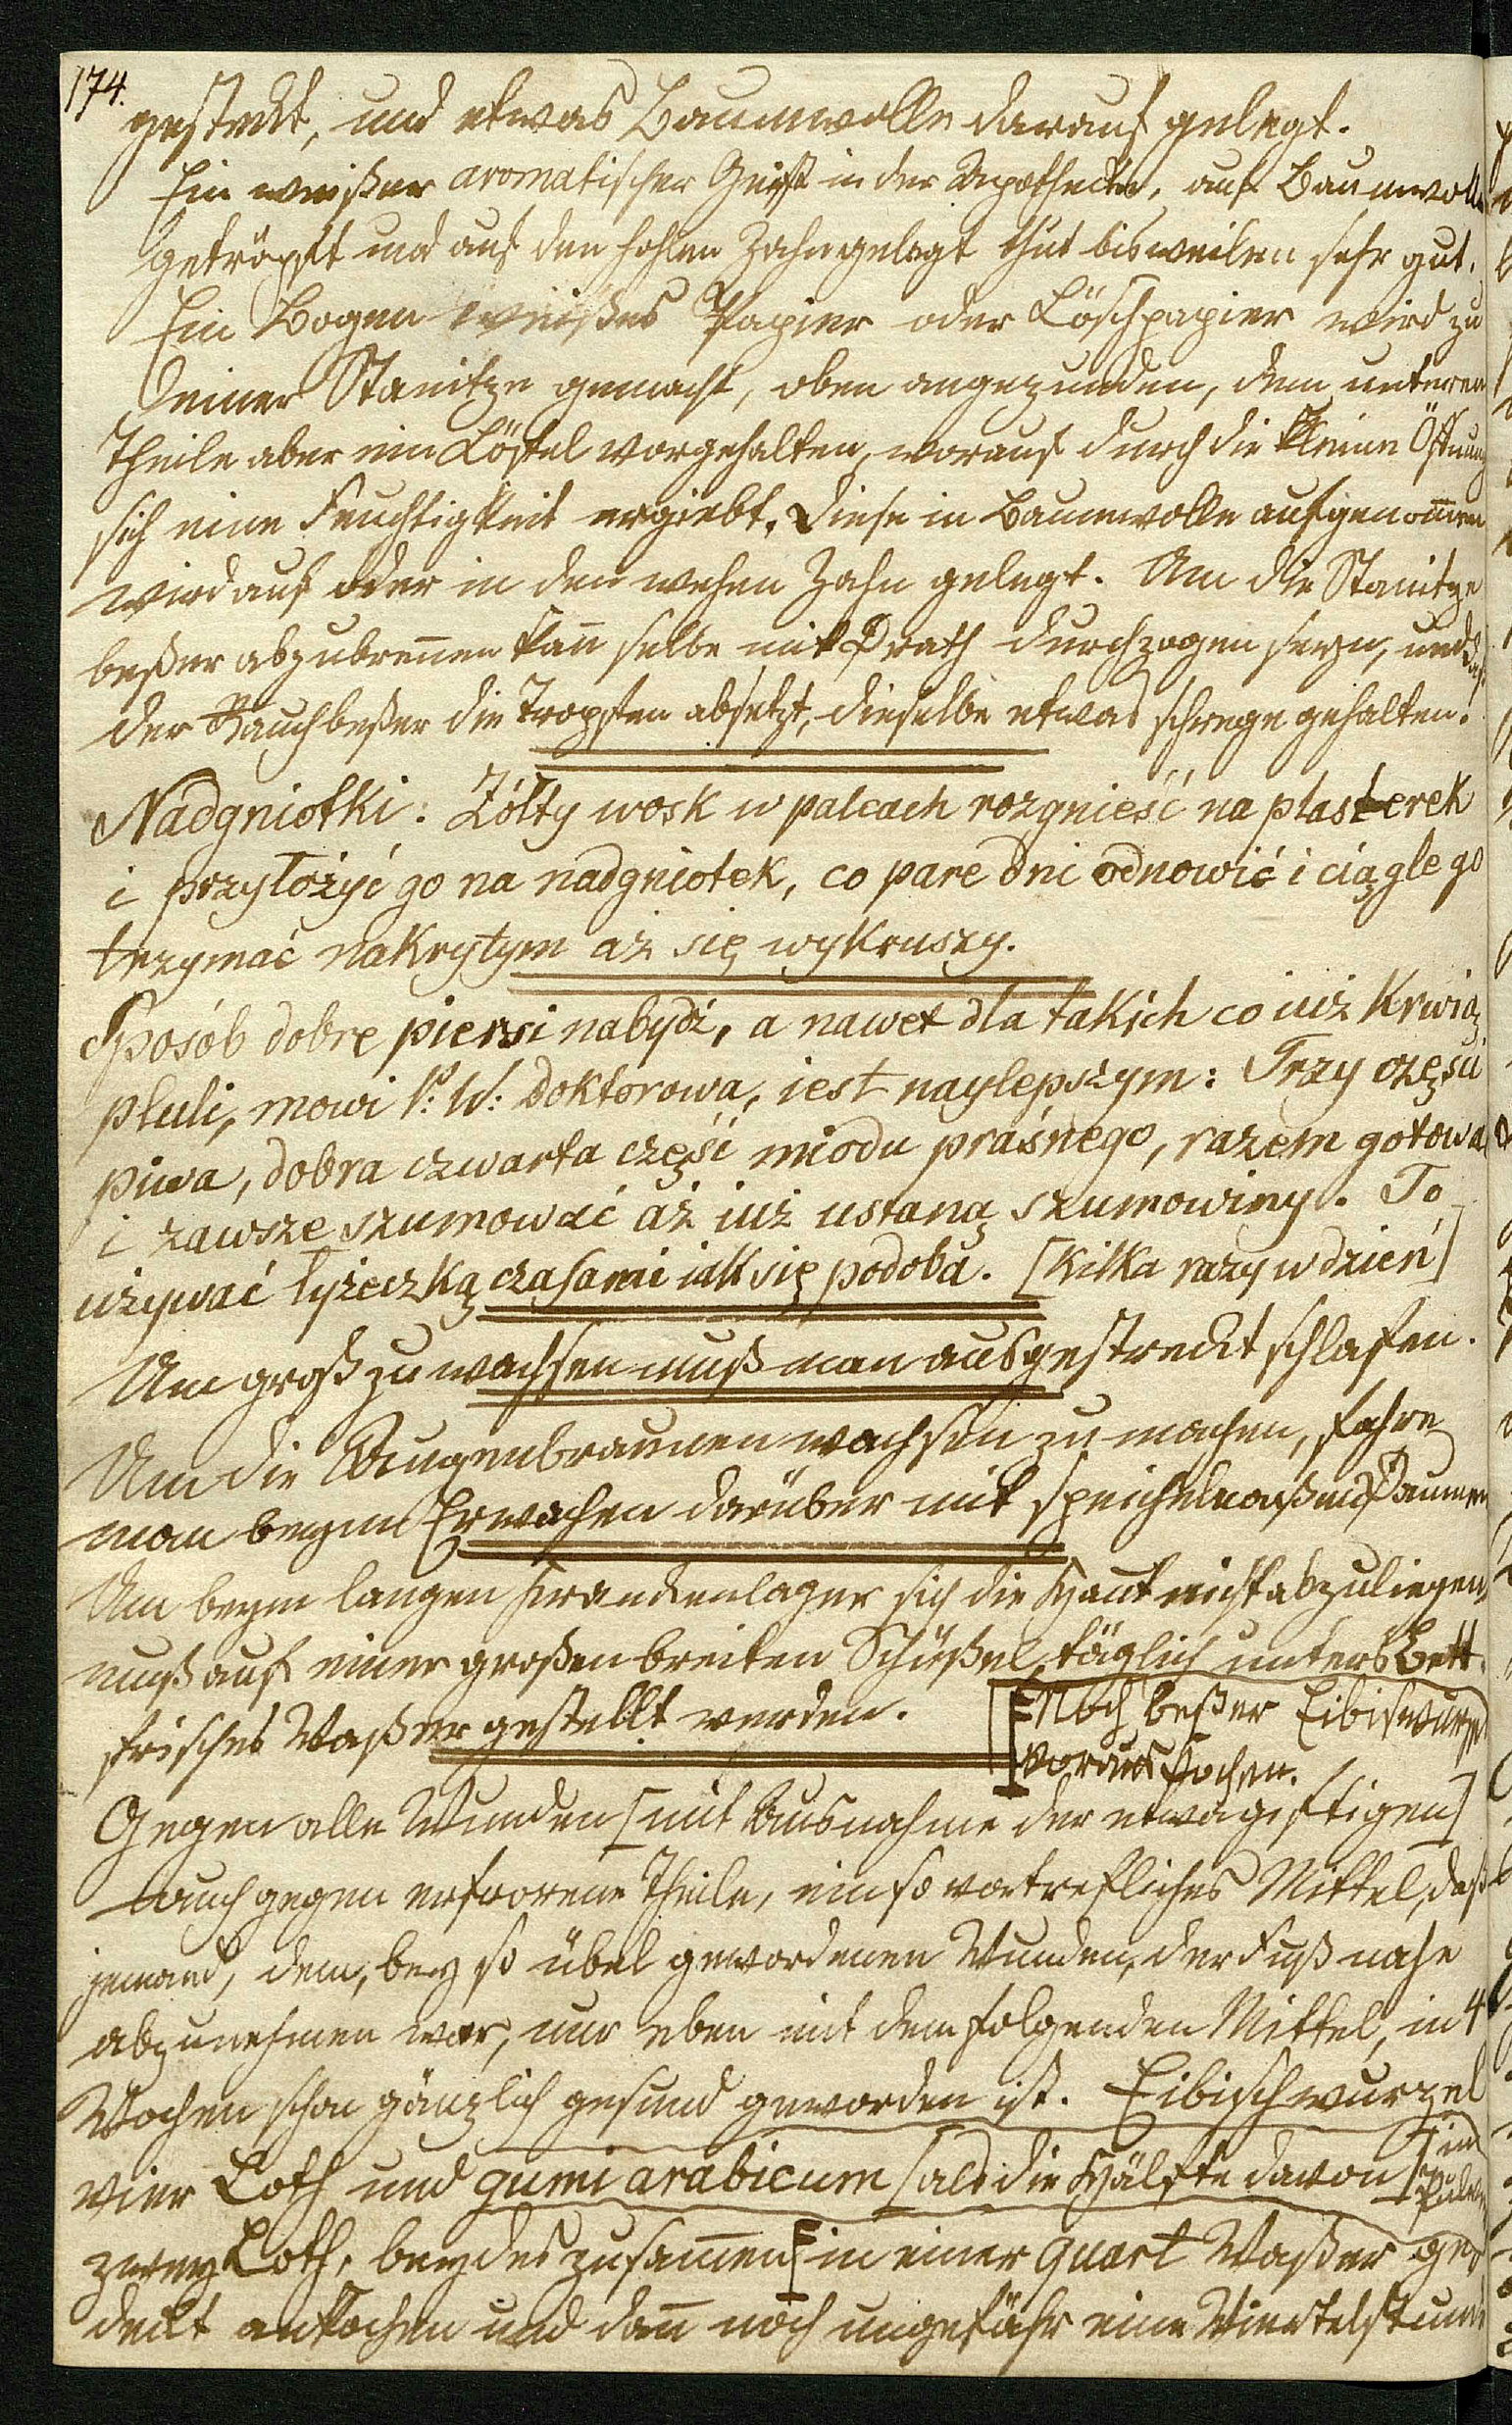 174.
gestekt, und etwas Baumwolle darauf gelegt.
Ein weißer aromatischer Geist in der Apotheke, auf Baumwolle
geträpft und auf den hohlen Zahn gelegt thut bisweilen sehr gut.
Ein Bogen weißes Papier oder Löschpapier wird zu
einer Stanitze gemacht, oben angezunden, dem unteren
Theile aber ein Löffel vorgehalten, worauf durch die kleine Öffnung
sich eine Feuchtigkeit ergiebt. Diese in Baumwolle aufgenom̅en
wird auf oder in den wehen Zahn gelegt. Um die Stanitze
beßer abzubren̅en kan̅ selbe mit Drath durchzogen seyn, und daß
der Rauch beßer die Tropfen absetzt, dieselbe etwas schrege gehalten.
Nadgniotki: Żółty wosk w palcach rozgnieść na plasterek
i przyłożyć go na nadgniotek, co pare dni odnowić i ciągle go
trzymać nakrytym aż się wykruszy.
Sposób dobre piersi nabydź, a nawet dla takich co iuż krwią
pluli, mowi P: W: doktorowa, iest naylepszym: Trzy części
piwa, dobra czwarta część miodu praśnego, razem gotować
i zawsze szumować aż iuż ustaną szumowiny. To
używać łyżeczką czasami iak się podoba. [kilka razy w dzień]
Um groß zu wachsen muß man ausgestreckt schlafen.
Um die Augenbraunen wachsen zu machen, fahre
man beym Erwachen darüber mit speichelnaßen Daumen
Um beym langen Krankenlager sich die Haut nicht abzuliegen,
muß auf einer großen breiten Schüßel täglich unters Bett
frisches Waßer gestellt werden. [Noch beßer Eibischwurzel
voraus kochen.
Gegen alle Wunden [mit Ausnahme der etwa giftigen]
auch gegen erfrorene Theile, ein so vortrefliches Mittel, daß
jemand, dem, bey so übel gewordenen Wunden, der Fuß nahe
abzunehmen war, nur eben mit dem folgenden Mittel, in 4
Wochen schon gänzlich gesund geworden ist. Eibischwurzel
vier Loth und gumi arabicum [als die Hälfte davon] in Pulver
zwey Loth, beydes zusam̅en in einer quart Waßer ge-
dekt ankochen und dan̅ noch ungefähr eine Viertelstunde